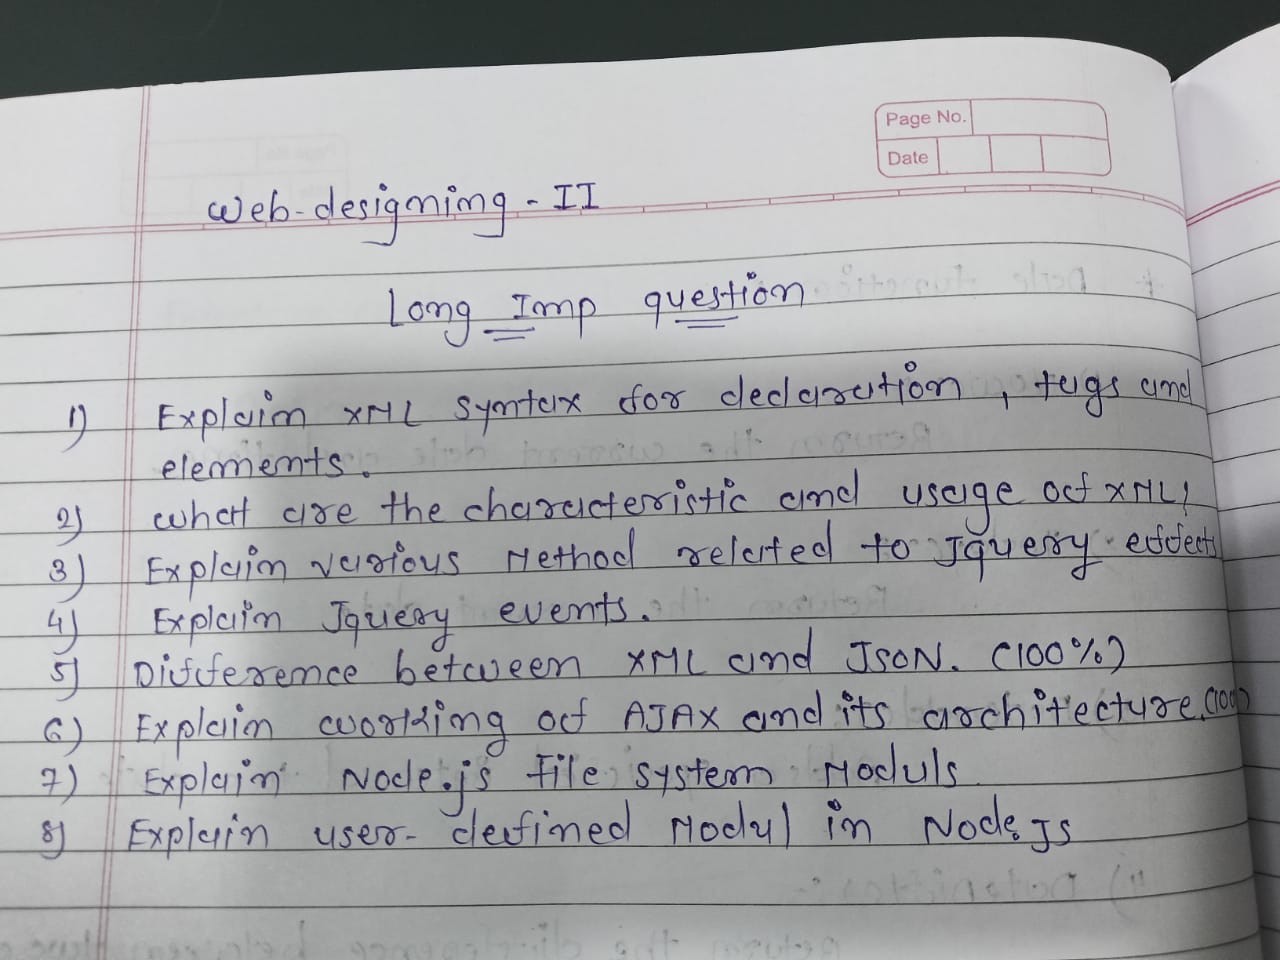 Page No.
Date
Web-designing - II
Long Imp question
1) Explain XML syntax for declaration, tags and
elements.
2) what are the characteristic and usage of XML!
3) Explain various Method related to Jquery effects
4) Explain Jquery events.
5) Difference between XML and JSON. (100%)
6) Explain working of AJAX and its architecture. (100)
7) Explain Node.js file system Moduls
8) Explain user-defined Modul in Node.JS